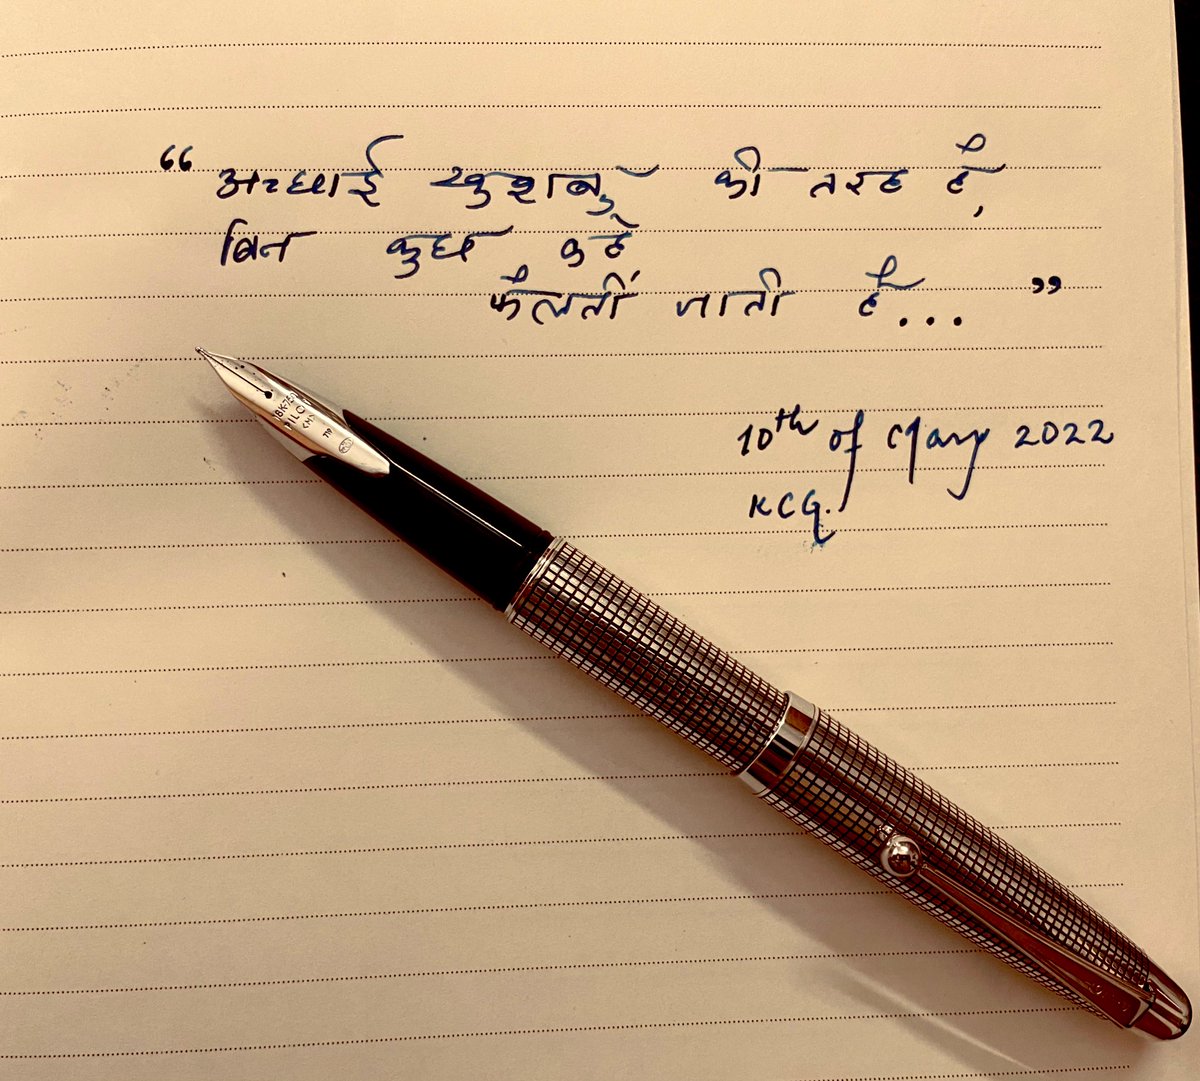 “ अच्छाई खुशबु की तरह है,
बिन कुछ कहे
फैलतीं जाती है... ”
10th of May 2022
KCG.
18K-750
PILOT
<M>